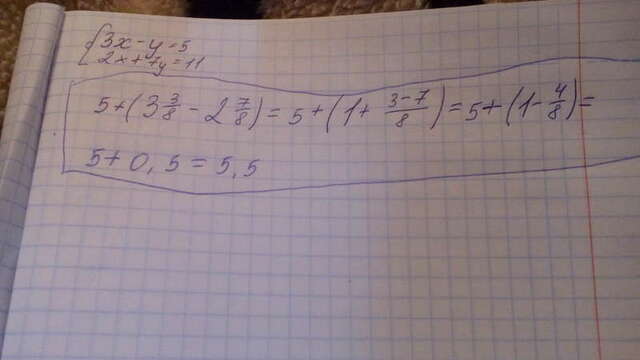 {3x-y=5
2x+7y=11
5+(3 3/8 - 2 7/8) = 5+(1+ 3-7/8) = 5+(1- 4/8) =
5+0,5 = 5,5